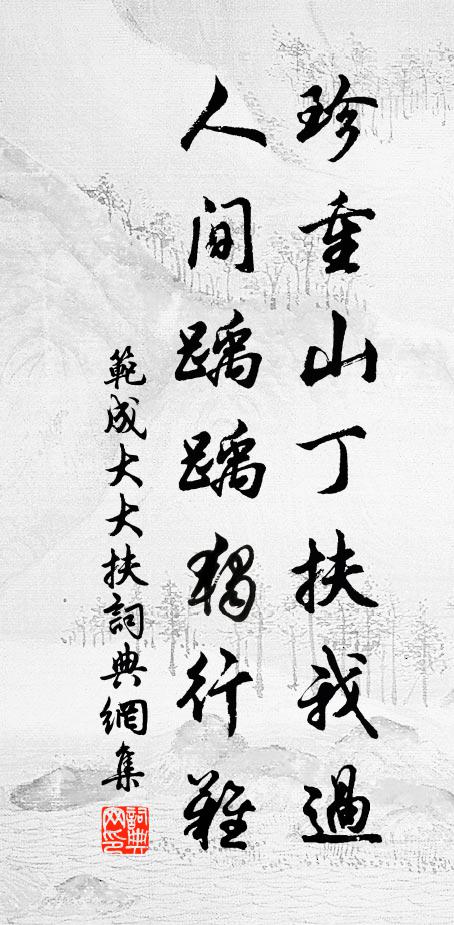 珍重山丁扶我過
人間踽踽獨行難
範成大大扶詞典網集
詞典網印